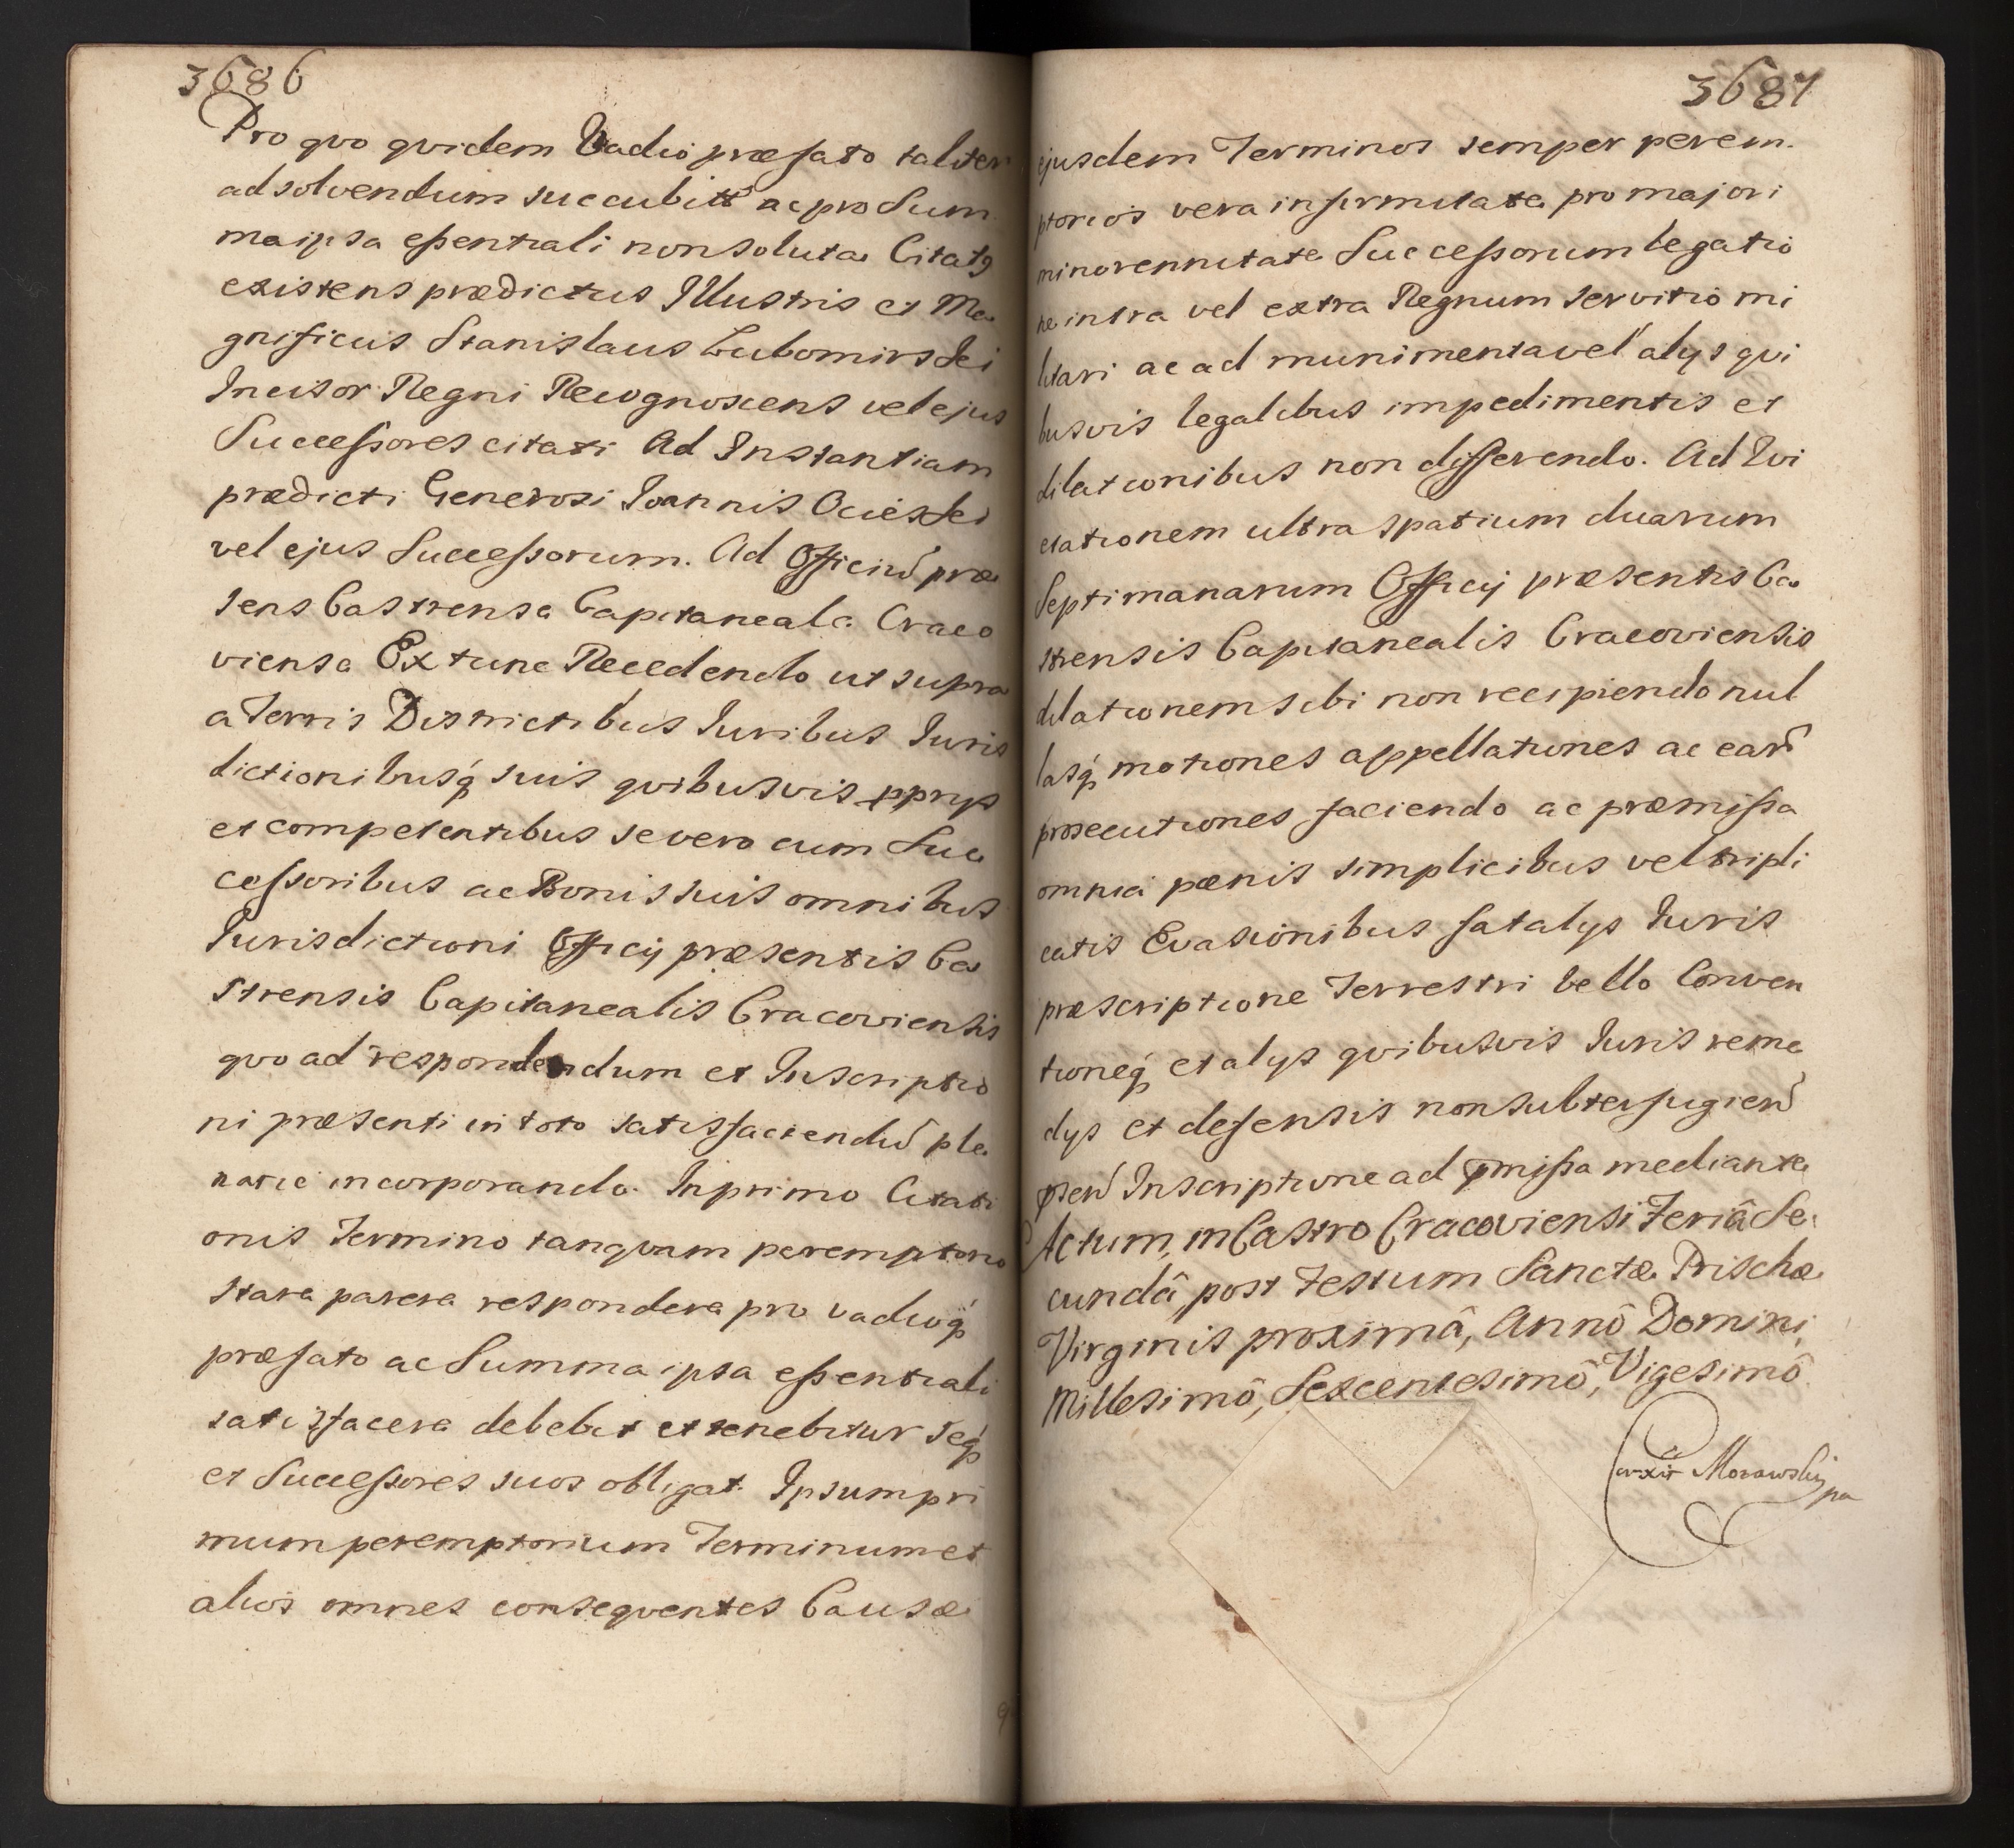 3686
Pro qvo qvidem Vadio præfato taliter
adsolvendum succubitô ac pro Sum
ma ipsa essentiali non soluta Citatq
existens prædictus Illustris et Ma
gnificus Stanislaus Lubomirski
Incisor Regni Recognoscens vel ejus
Successores citati Ad Instantiam
prædicti Generosi Joannis Ocieski
vel ejus Successorum. Ad Officiũ præ
sens Castrense Capitaneale Craco
viense Extunc Recedendo ut supra
a Terris Districtibus Juribus Juris
dictionibusq́ suis qvibusvis pprijs
et competentibus se vero cum Suc
cessoribus ac Bonis suis omnibus
Jurisdictioni Officij præsentis Ca
strensis Capitanealis Cracoviensis
qvo ad respondendum et Inscriptio
ni præsenti in toto satisfaciendũ ple
narie incorporando. In primo Citati
onis Termino tanqvam peremptorio
stare parere respondere pro vadioq́
præfato ac Summa ipsa essentiali
satisfacere debebit et tenebitur seq́
et Successores suos obligat. Ipsum pri
mum peremptorium Terminum et
alios omnes conseqventes Causæ
3687
ejusdem Terminos semper perem-
ptorios vera infirmitate pro majori
minorennitate Successorum legatio
ne intra vel extra Regnum servitio mi
litari ac ad munimenta vel alijs qvi
busvis legalibus impedimentis et
dilationibus non differendo. Ad Evi
ctionem ultra spatium duarum
Septimanarum Officij præsentis Ca
strensis Capitanealis Cracoviensis
dilationem sibi non recipiendo nul
lasq́ motiones appellationes ac earũ
prosecutiones faciendo ac præmissa
omnia pœnis simplicibus vel tripli
catis Evasionibus fatalijs Juris
præscriptione Terrestri bello Conven
tioneq́ et alijs qvibusvis Juris reme
dijs et defensis non subterfugiend̃
pseñ Inscriptione ad p̃missa mediante
Actum, in Castro Cracoviensi Feriâ Se-
cundâ post Festum Sanctæ Prischæ
Virginis proximâ, Annô Domini
Millesimô, Sexcentesimô, Vigesimô
Morawskij